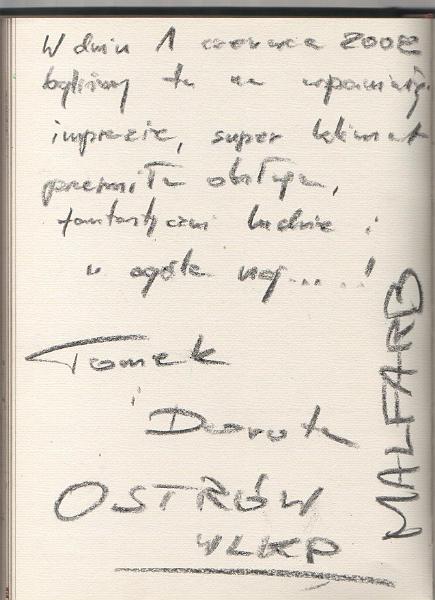 W dniu 1 czerwca 2002
byliśmy tu na wspaniałej
imprezie, super klimat
przemiła obsługa,
fantastyczni ludzie i
w ogóle naj....!
Tomek
i
Dorota
OSTRÓW
WLKP
MALFARB